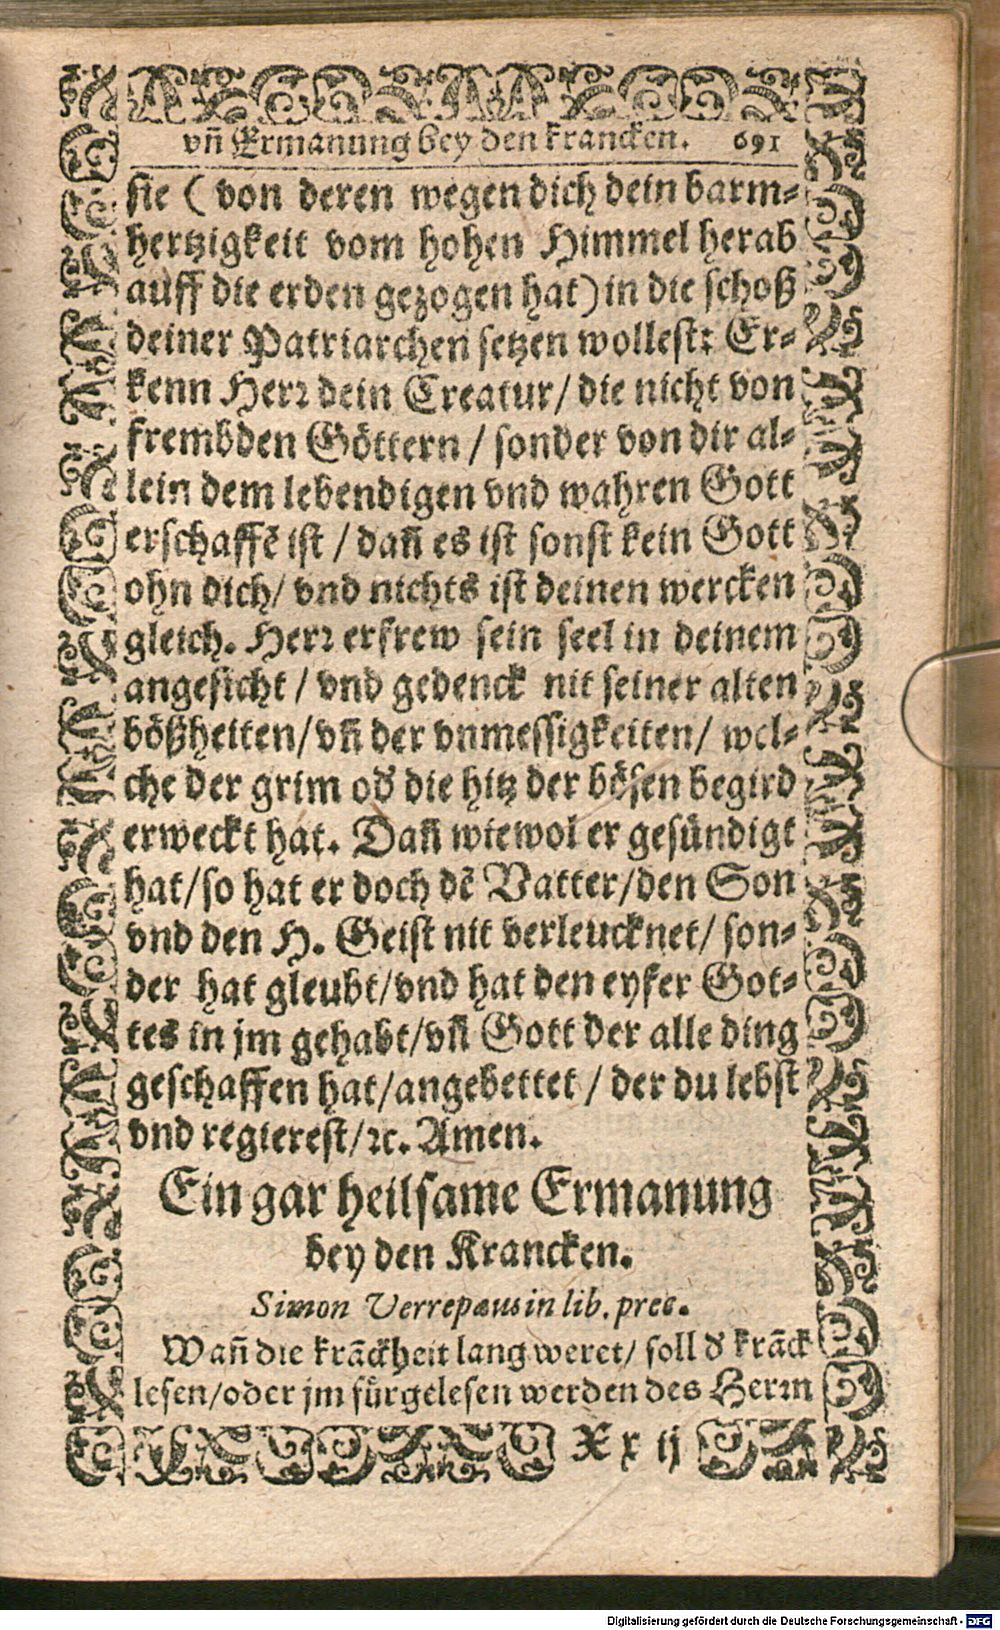 vñ Ermanung bey den krancken. 691
sie ( von deren wegen dich dein barm-
hertzigkeit vom hohen Himmel herab
auff die erden gezogen hat) in die schoß
deiner Patriarchen setzen wollest: Er-
kenn Herr dein Creatur/ die nicht von
frembden Göttern / sonder von dir al-
lein dem lebendigen vnd wahren Gott
erschaffẽ ist / dañ es ist sonst kein Gott
ohn dich/ vnd nichts ist deinen wercken
gleich. Herr erfrew sein seel in deinem
angesicht / vnd gedenck nit seiner alten
bößheiten/ vñ der vnmessigkeiten/ wel-
che der grim od' die hitz der bösen begird
erweckt hat. Dañ wiewol er gesündigt
hat/so hat er doch dẽ Vatter/den Son
vnd den H. Geist nit verleucknet/ son-
der hat gleubt/vnd hat den eyfer Got-
tes in jm gehabt/vñ Gott der alle ding
geschaffen hat/angebettet / der du lebst
vnd regierest/ꝛc. Amen.
Ein gar heilsame Ermanung
bey den Krancken.
Simon Verrepæus in lib. prec.
Wañ die krãckheit lang weret/ soll d' krãck
lesen/oder jm fürgelesen werden des Herrn
X x ij
Digitalisierung gefördert durch die Deutsche Forschungsgemeinschaft - DFG